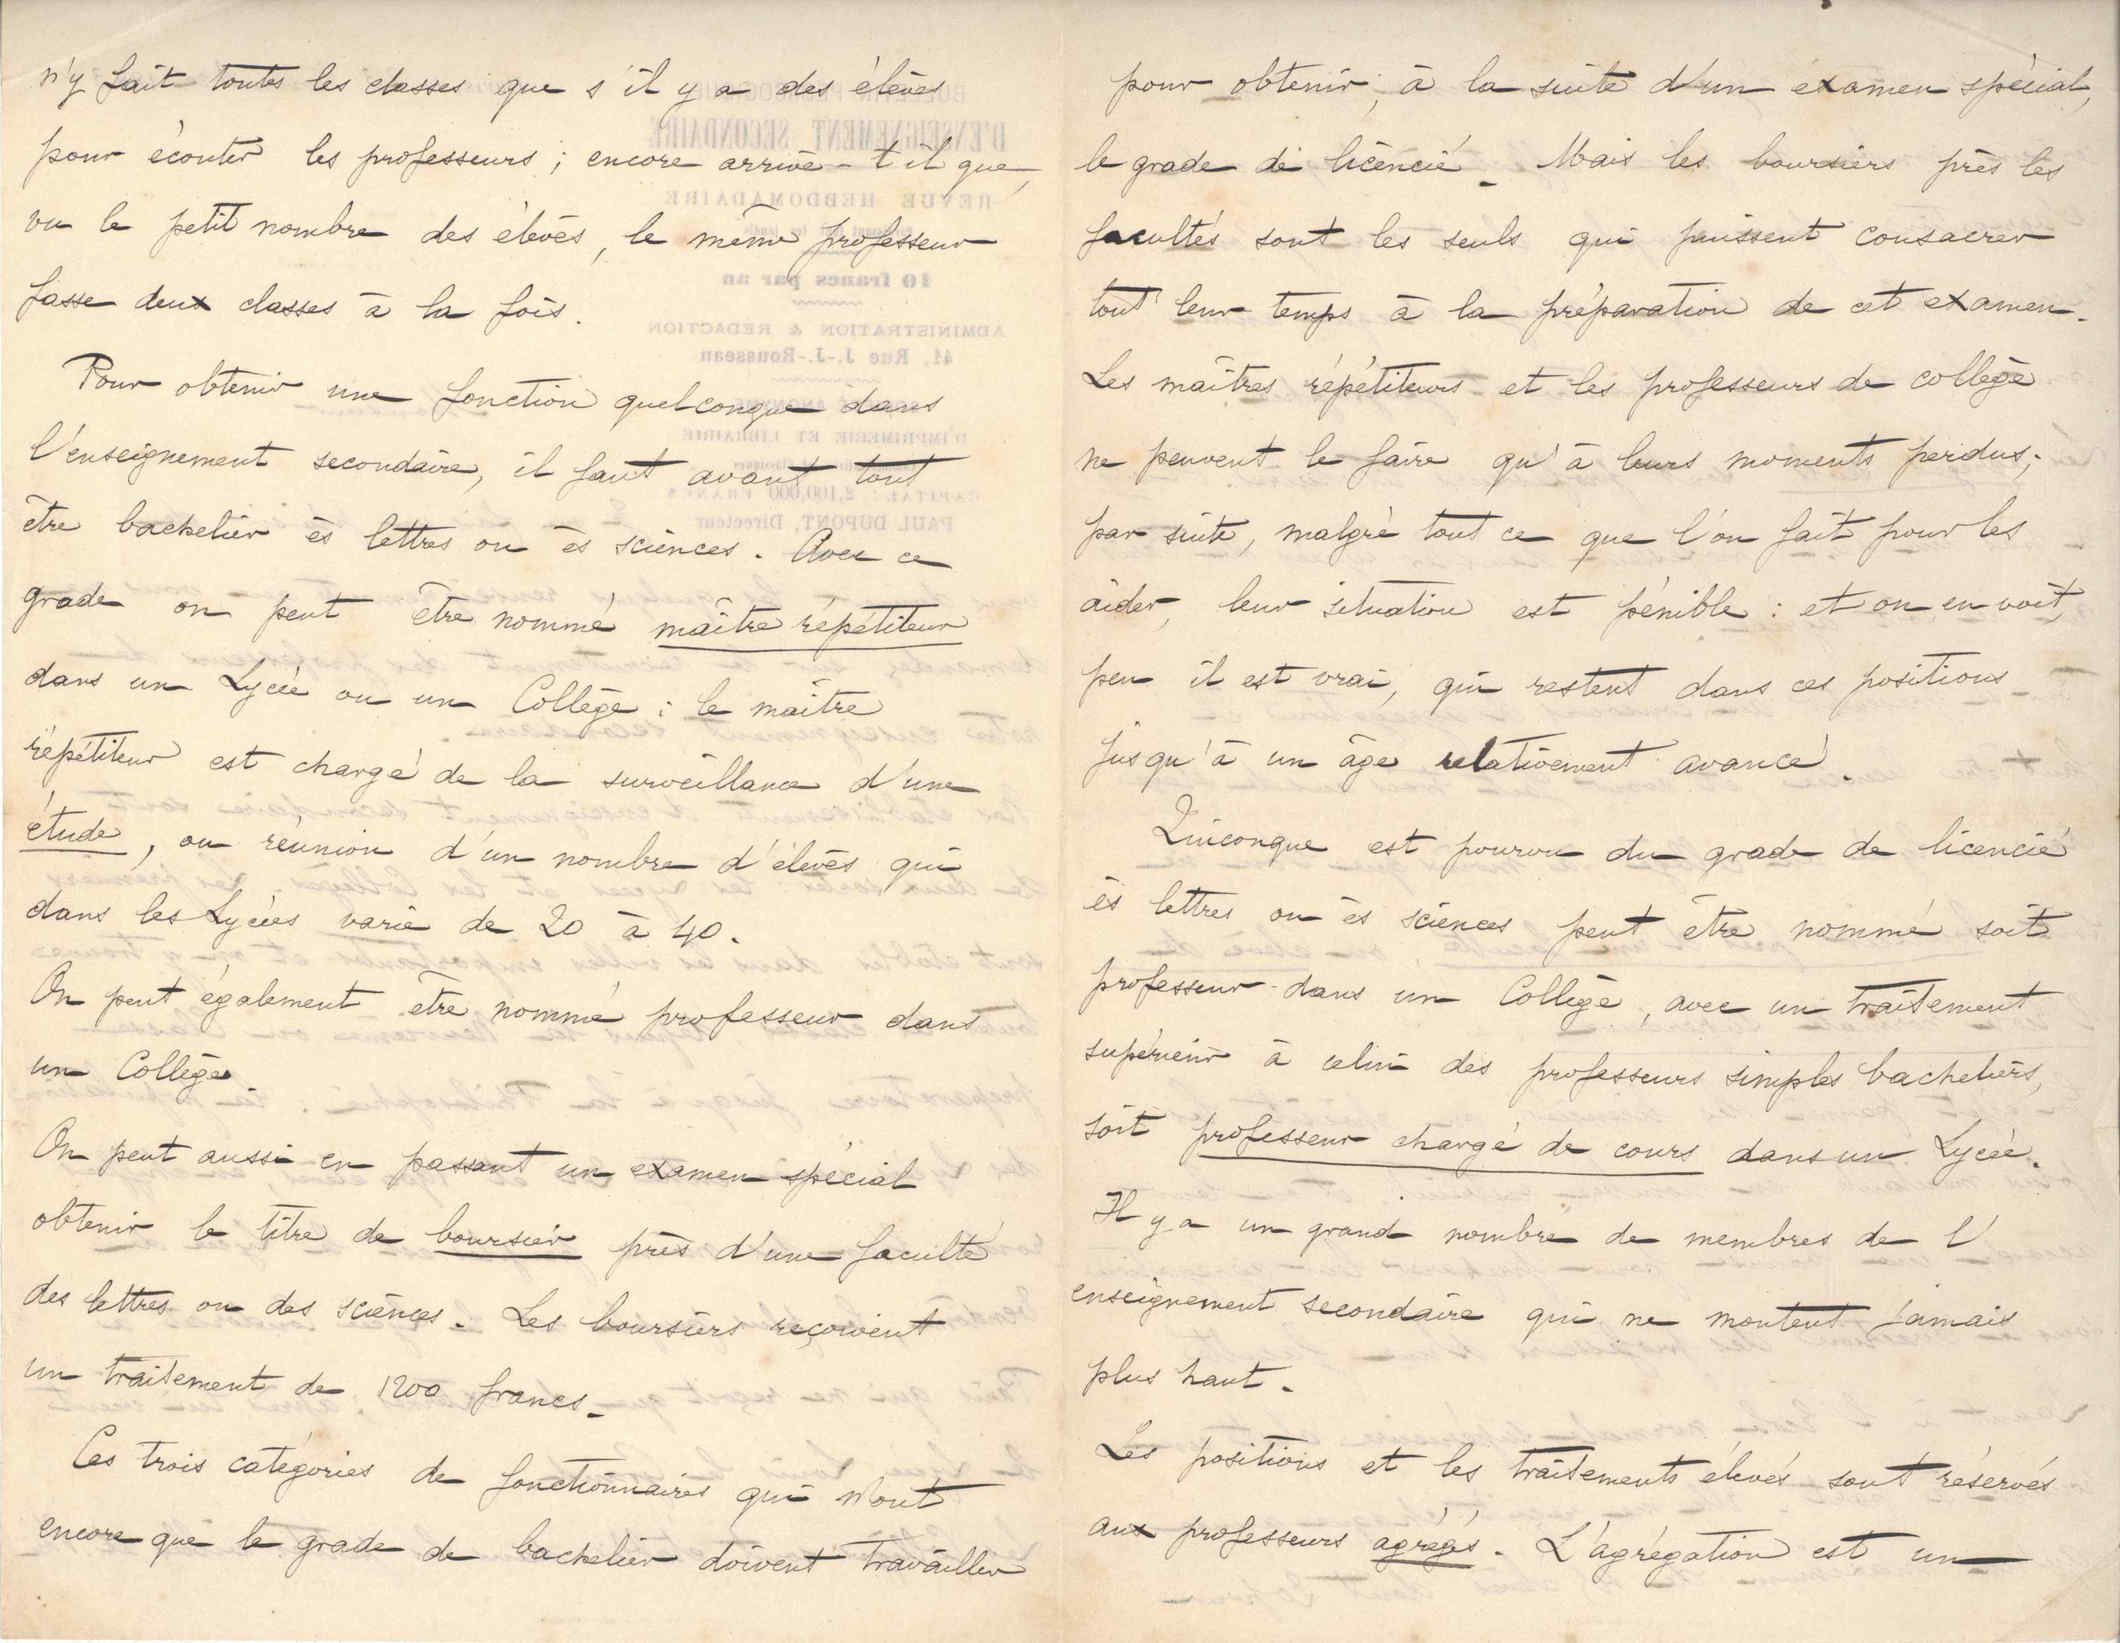 n'y fait toutes les classes que s'il y a des élèves
pour écouter les professeurs ; encore arrive-t il que,
vu le petit nombre des élèves, le même professeur
fasse deux classes à la fois.
Pour obtenir une fonction quelconque dans
l'enseignement secondaire, il faut avant tout
être bachelier ès lettres ou ès sciences. Avec ce
grade on peut être nommé maître répétiteur
dans un Lycée ou un Collège : le maître
répétiteur est chargé de la surveillance d'une
étude, ou réunion d'un nombre d'élèves qui
dans les Lycées varie de 20 à 40.
On peut également être nommé professeur dans
un Collège.
On peut aussi en passant un examen spécial
obtenir le titre de boursier près d'une faculté
des lettres ou des sciences. Les boursiers reçoivent
un traitement de 1200 francs.
Ces trois catégories de fonctionnaires qui n'ont
encore que le grade de bachelier doivent travailler
pour obtenir, à la suite d'un examen spécial,
le grade de licencié. Mais les boursiers près les
facultés sont les seuls qui puissent consacrer
tout leur temps à la préparation de cet examen.
Les maîtres répétiteurs et les professeurs de collège
ne peuvent le faire qu'à leurs moments perdus ;
par suite, malgré tout ce que l'on fait pour les
aider, leur situation est pénible : et on en voit,
peu il est vrai, qui restent dans ces positions
jusqu'à un âge relativement avancé.
Quiconque est pourvu du grade de licencié
ès lettres ou ès sciences peut être nommé soit
professeur dans un Collège, avec un traitement
supérieur à celui des professeurs simples bacheliers,
soit professeur chargé de cours dans un Lycée.
Il y a un grand nombre de membres de l'
enseignement secondaire qui ne montent jamais
plus haut.
Les positions et les traitements élevés sont réservés
aux professeurs agrégés. L'agrégation est un